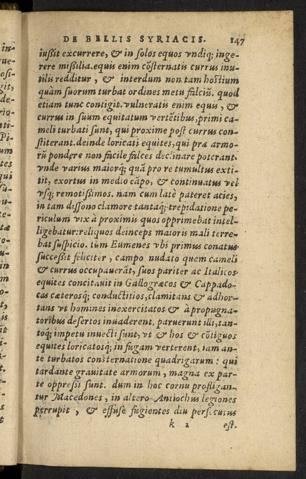 DE BELLIS SYRIACIS. 147
iussit excurrere, & in solos equos vndiq; inge-
rere missilia. equis enim cõsternatis currus inu-
tilis redditur, & interdum non tam hostium
quàm suorum turbat ordines metu falciũ. quod
etiam tunc contigit. vulneratis enim equis, &
currus in suum equitatum vertẽtibus, primi ca-
meli turbati sunt, qui proxime post currus con-
stiterant. deinde loricati equites, qui præ armo-
rũ pondere non facile falces declinare poterant.
vnde varius maiorq; quã pro re tumultus exti-
tit, exortus in medio cãpo, & continuatus vel
vsq; remotissimos. nam cum latè pateret acies,
in tam dissono clamore tantaq; trepidatione pe-
riculum vix à proximis quos opprimebat intel-
ligebatur: reliquos deinceps maioris mali terre-
bat suspicio. tùm Eumenes vbi primus conatus
successit feliciter, campo nudato quem cameli
& currus occupauerãt, suos pariter ac Italicos
equites concitauit in Gallogræcos & Cappado-
cas cæterosq; conductitios, clamitans & adhor-
tans vt homines inexercitatos & à propugna-
toribus desertos inuaderent. paruerunt illi, tan-
toq; impetu inuecti sunt, vt & hos & cõtiguos
equites loricatosq; in fugam verterent, iam an-
te turbatos consternatione quadrigarum: qui
tardante grauitate armorum, magna ex par-
te oppressi sunt. dum in hoc cornu profligan-
tur Macedones, in altero Antiochus legiones
perrupit, & effusè fugientes diu persecutus
k 2 est.